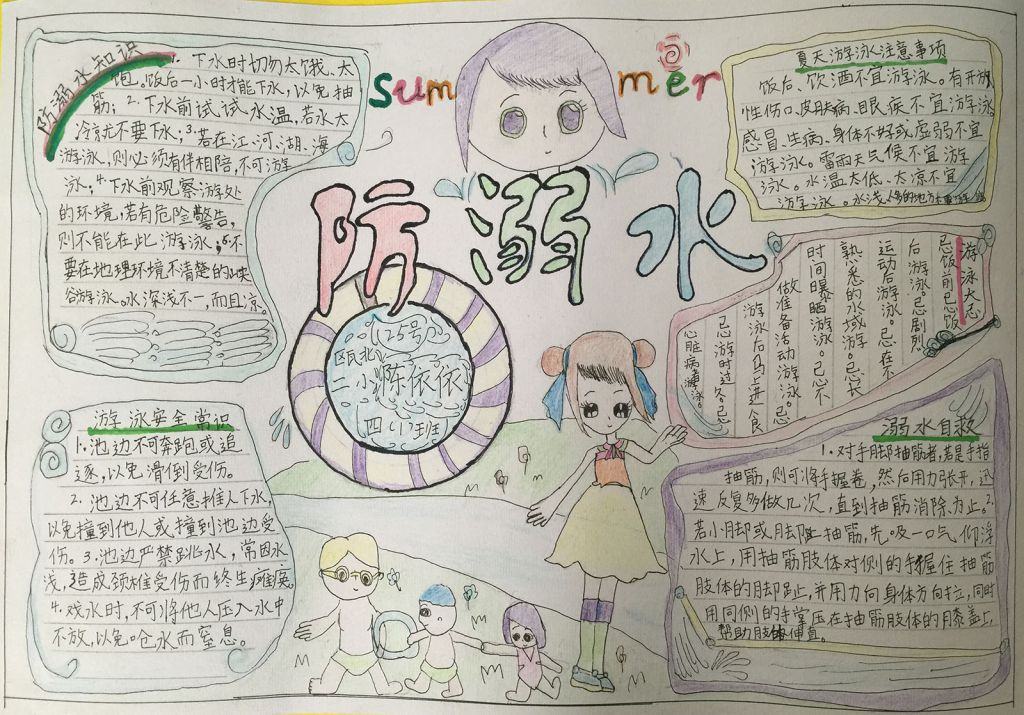 防溺水知识
1. 下水时切勿太饿、太
饱。饭后一小时才能下水,以免抽
筋;2.下水前试试水温,若水太
冷就不要下水;3.若在江、河、湖、海
游泳,则必须有伴相陪,不可游
泳;4.下水前观察游处
的环境,若有危险警告,
则不能在此游泳;5.不
要在地理环境不清楚的峡
谷游泳。水深浅不一,而且凉。
summer
防溺水
夏天游泳注意事项
饭后、饮酒不宜游泳。有开放
性伤口、皮肤病、眼疾不宜游泳
感冒、生病、身体不好或虚弱不宜
游泳。雷雨天气候不宜游
泳。水温太低、太凉不宜
游泳。水浅人多的地方
游泳大忌
忌饭前忌饭
后游泳。忌剧烈
运动后游泳。忌在不
熟悉的水域游泳。忌长
时间曝晒游泳。忌不
做准备活动游泳。忌
游泳后马上进食
忌游时过久。忌
心脏病者游泳。
(25号)
区北
二小陈依依
四(1)班
游泳安全常识
1.池边不可奔跑或追
逐,以免滑倒受伤。
2.池边不可任意推人下水,
以免撞到他人或撞到池边受
伤。3.池边严禁跳水,常因水
浅,造成颈椎受伤而终生瘫痪
4.戏水时,不可将他人压入水中
不放,以免呛水而窒息。
溺水自救
1.对手脚抽筋者,若是手指
抽筋,则可将手握卷,然后用力张开,迅
速反复多做几次,直到抽筋消除为止。2.
若小脚或脚趾抽筋,先吸一口气仰浮
水上,用抽筋肢体对侧的手握住抽筋
肢体的脚趾,并用力向身体方向拉,同时
用同侧的手掌压在抽筋肢体的膝盖上,
帮助肢体伸直。